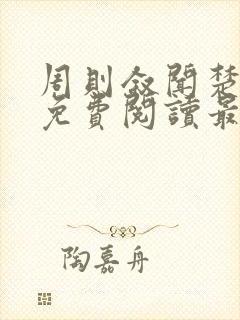 周則敘聞楚
免費閱讀最
陶嘉舟